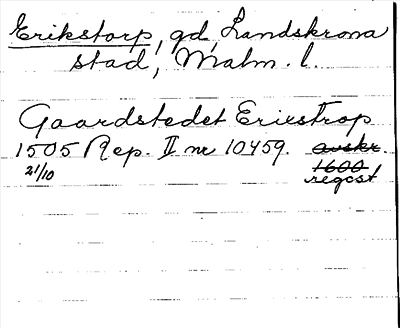 Erikstorp, gd, Landskrona
stad, Malm. l.
Gaardstedet Ericstrop
1505 Rep. II nr 10459. avskr.
21/10 1600
regest